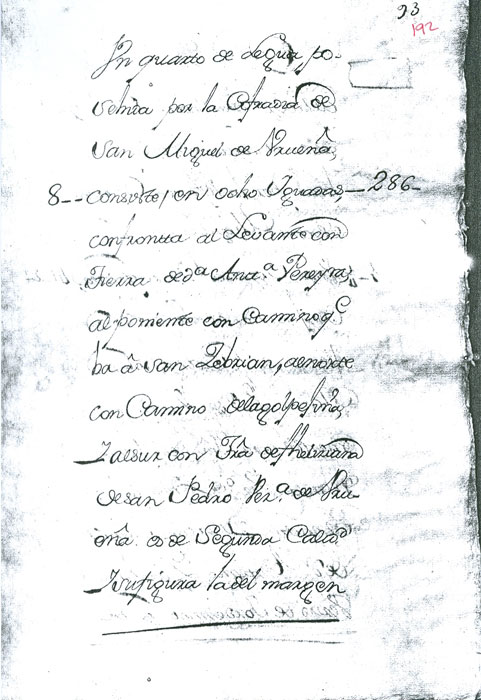 93
192
Un quarto de Legua po-
sehida por la Cofradia de
San Miguel de Urueña,
8-- consiste, en ocho Yguadas, -- 286-
confronta al Levante con
Tierra de d.ª Ana.ª Pereyra,
al poniente con Camino q.e
ba â San Zebrian, al norte
con Camino delagolpesina,
Y alsur con Trã de
de San Pedro de Uru-
eña es de Segunda Calad
Ysufigura la del margen